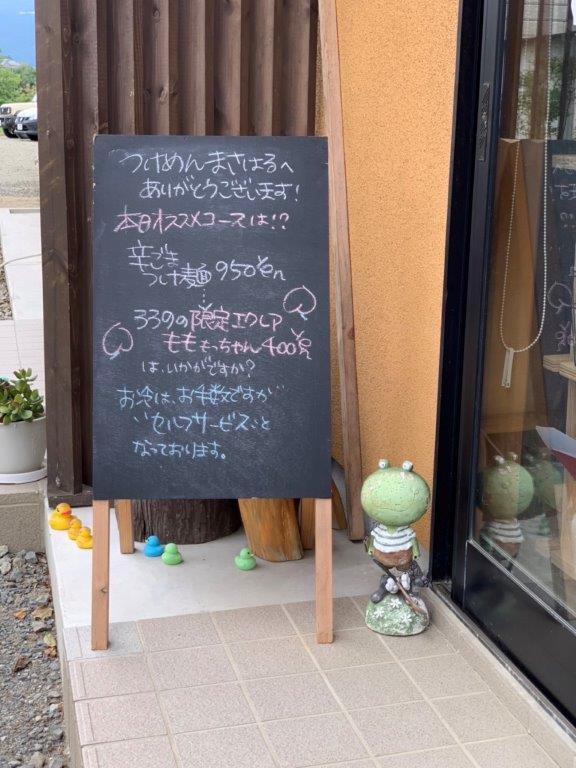 つけめんまさはるへ
ありがとうございます!
本日オススメコースは!?
辛ごま
つけ麺 950えん
339の限定エクレア
もももっちゃん400円
は、いかがですか?
お冷は、お手数ですが
"セルフサービス"と
なっております。